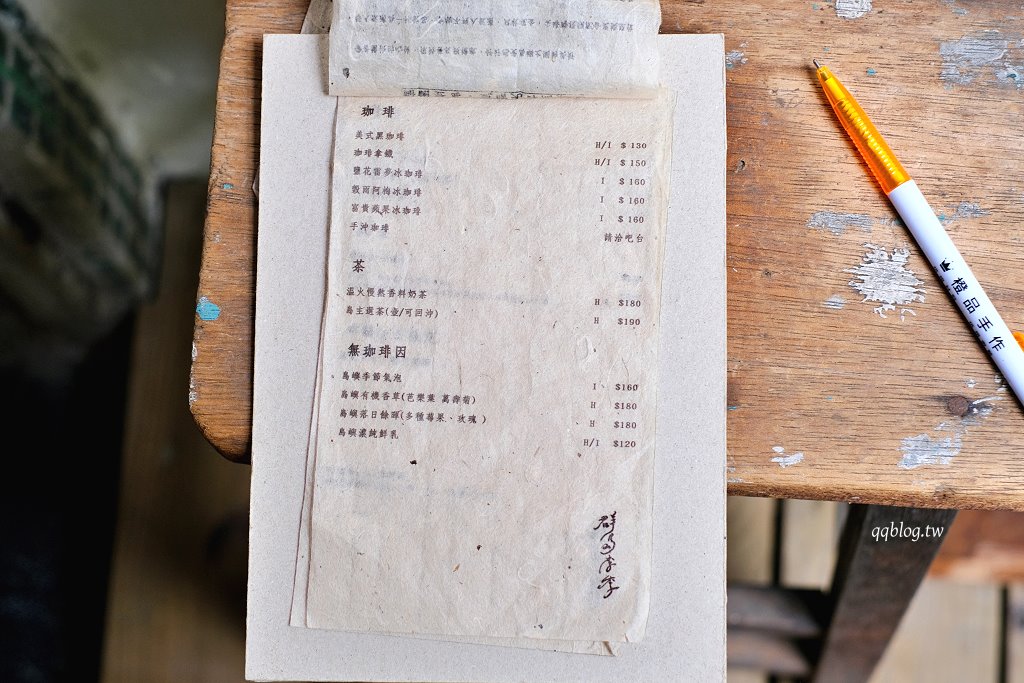 珈琲
美式黑珈琲 H/I $130
珈琲拿鐵 H/I $150
鹽花蕾夢冰珈琲 I $160
穀雨阿梅冰珈琲 I $160
富貴蘋果冰珈琲 I $160
手沖珈琲 請洽吧台
茶
溫火慢熬香料奶茶 H $180
島主選茶(壺/可回沖) H $190
無珈琲因
島嶼季節氣泡 I $160
島嶼有機香草(芭樂葉 萬壽菊) H $180
島嶼落日餘暉(多種莓果、玫瑰) H $180
島嶼濃純鮮乳 H/I $120
橙品手作
qqblog.tw